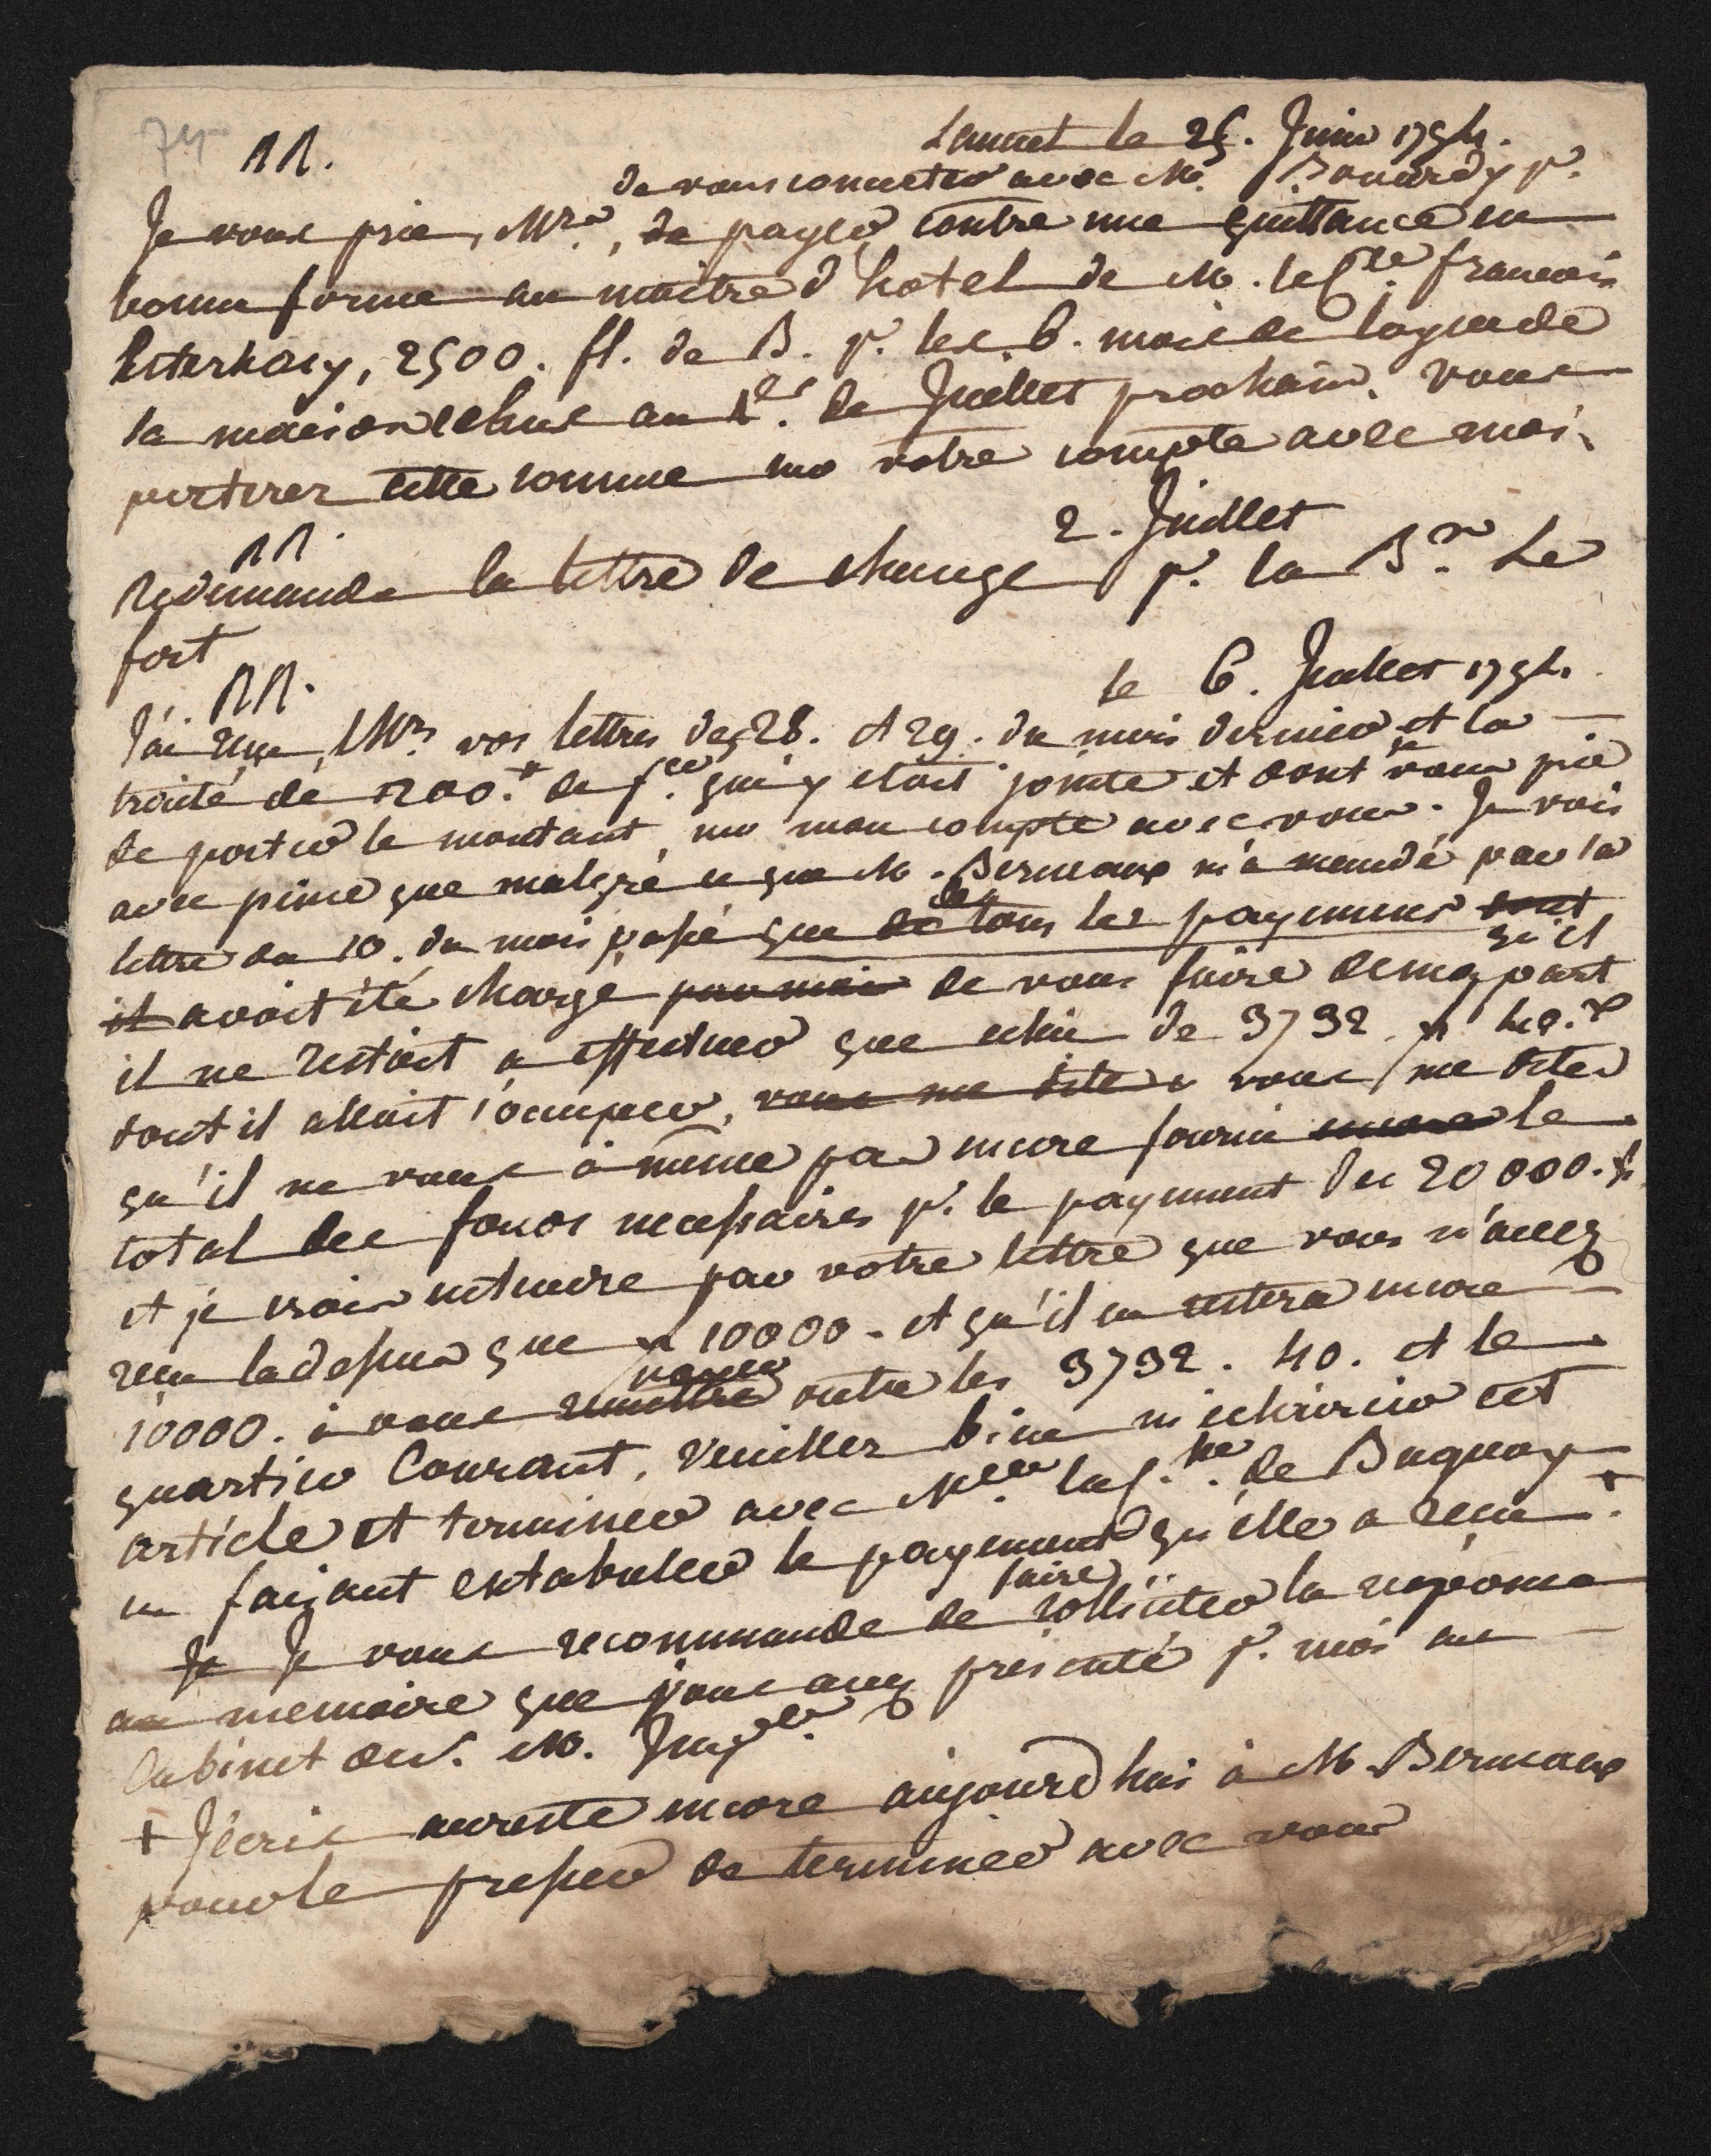 74
NN.
le 25. Juin 1794.
de vous concerter avec M. Bouurdy pr.
Je vous prie, Mrs., de payer contre une quittance en
bonne forme au maitre d'hotel de M. le Cte. francois
Esterhasy, 2500. fl. de B. pr. les 6. mois de loyer de
sa maison echus au 1er. de Juillet prochain. vous
porterez cette somme sur votre compte avec moi.
2. Juillet
NN.
Redemande la lettre de change pr. la Bne. Le
fort
le 6. Juillet 1794.
NN.
J'ai reçu, Mrs vos lettres des 28. et 29. du mois dernier et la
traite de 1200.# de fce. qui y etoit jointe et dont je vous prie
de porter le montant sur mon compte avec vous. Je vois
avec peine que malgré ce que M. Bermaux m'a mandé par sa
lettre du 10. du mois passé que de des tous les payemens dont
qu'il
il avoit été chargé par moi de vous faire de ma part
il ne restoit a effectuer que celui de 3792 f 40.x
dont il alloit s'occuper, vous me dites vous me dites
qu'il ne vous a même pas encore fourni encore le
total des fonds necessaires pr. le payement des 20000. f
et je crois entendre par votre lettre que vous n'avez
reçu ladessus que f 10000. et qu'il en restera encore
10000. à vous remettre payer outre les 3792. 40. et le
quartier Courant, veuillez bien m'echaircir cet
article et terminer avec Mde. la Csse. de Buquoy
en faisant extabuler le payement qu'elle a reçu. +
Je Je vous recommande de faire solliciter la reponse
au memoire que vous avez presenté pr. moi au
Cabinet de S. M. Imple.
+ J'écris aureste encore aujourd'hui à M Bermaux
pour le presser de terminer avec vous